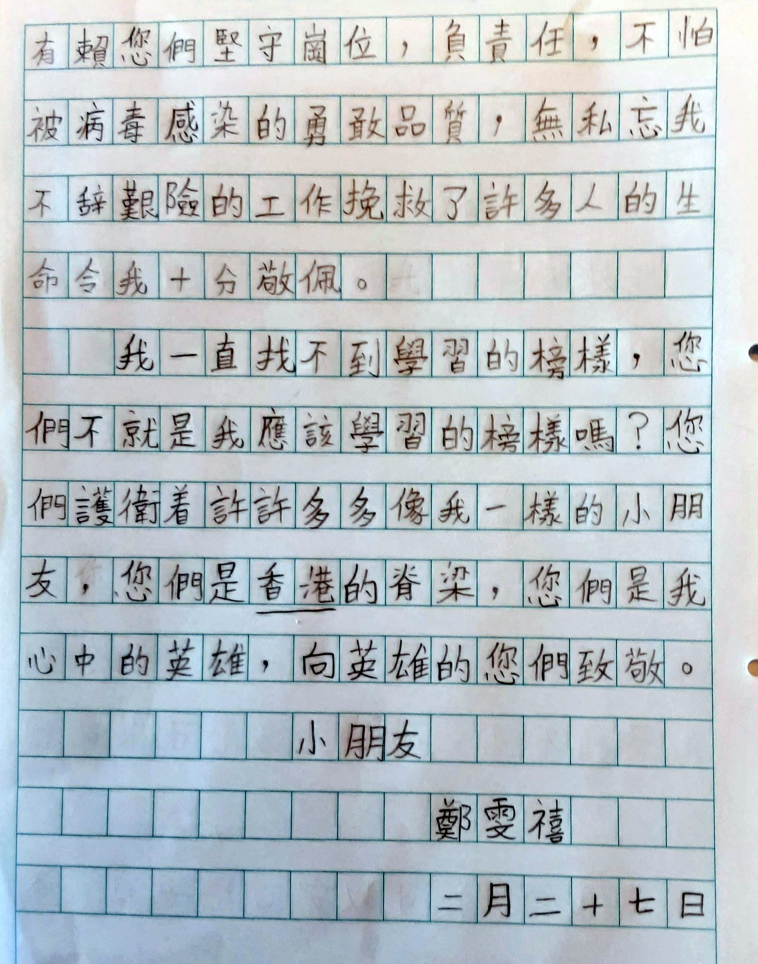 有賴您們堅守崗位，負責任，不怕
被病毒感染的勇敢品質，無私忘我
不辭艱險的工作挽救了許多人的生
命令我十分敬佩。
我一直找不到學習的榜樣，您
們不就是我應該學習的榜樣嗎？您
們護衛着許許多多像我一樣的小朋
友，您們是香港的脊梁，您們是我
心中的英雄，向英雄的您們致敬。
小朋友
鄭雯禧
二月二十七日